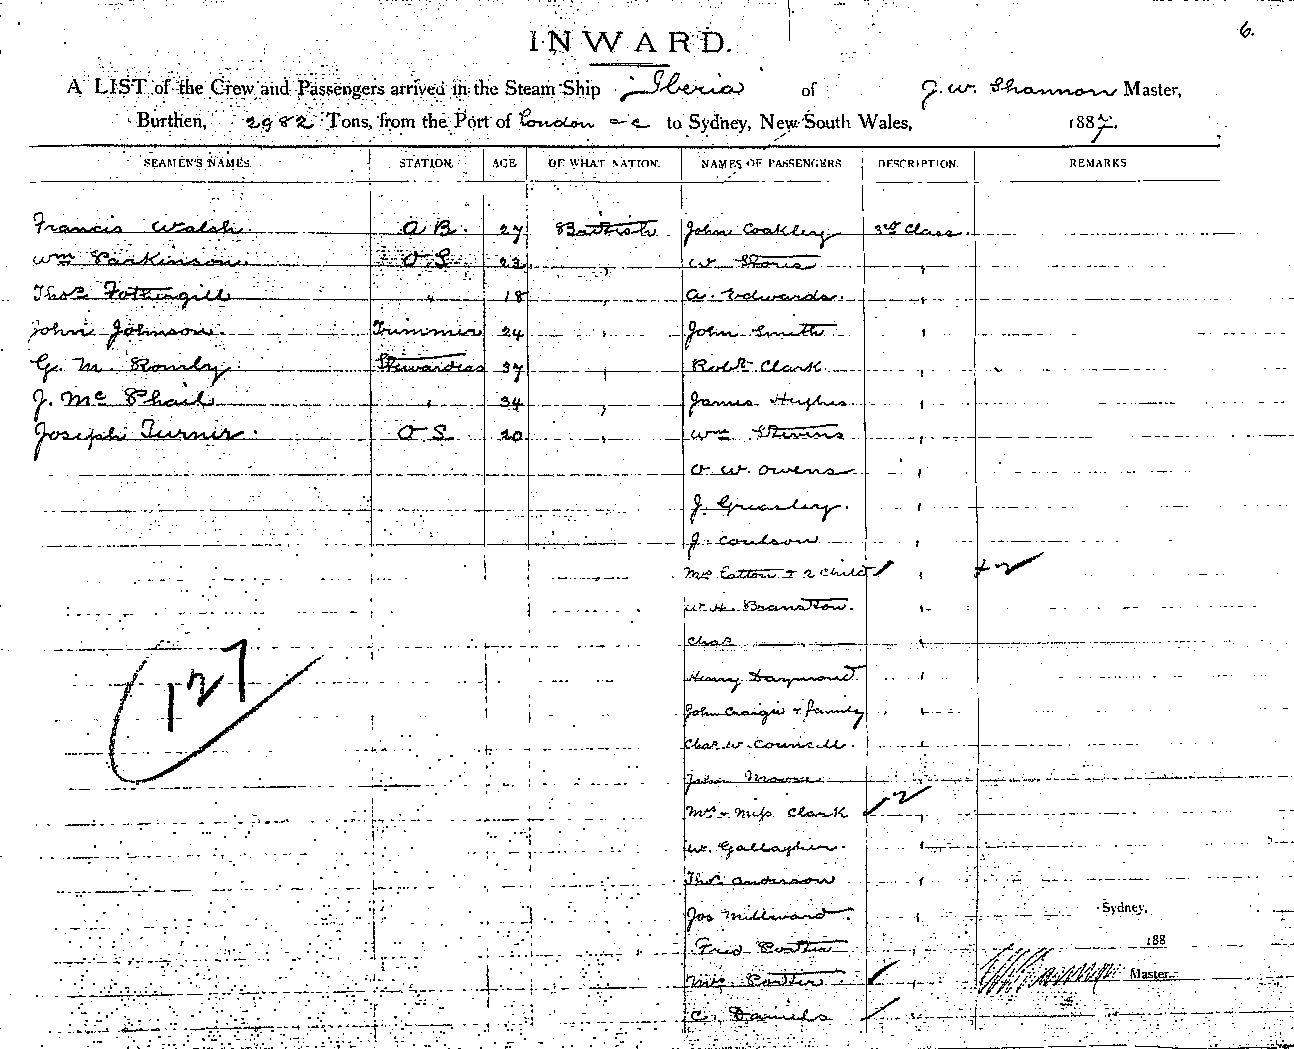 6.
INWARD.
A LIST of the Crew and Passengers arrived in the Steam Ship Iberia of J. W. Shannon Master,
Burthen, 2982 Tons, from the Port of London &c to Sydney, New South Wales, 1887.
SEAMEN'S NAMES. STATION. AGE OF WHAT NATION. NAMES OF PASSENGERS DESCRIPTION. REMARKS
Francis Walsh A B. 27 British John Coakley 3rd Class.
Wm Parkinson O S 23 " W "
Thos Fothergill " 18 " A. Edwards. "
John Johnson Trimmer 24 " John Smith "
G. M. Romly Stewardess 37 " Robt Clark "
J. Mc Phail " 34 " James Hughes "
Joseph Turner. O S 20 " Wm Stevens "
O W. Owens "
J. Greasley. "
J. Coulson "
Mrs Eatton & 2 Child " + 2
W. H. Branston. "
Chas "
Henry Haymond "
John Craigie & family "
Chas W. Counsell. "
John Moore "
Mrs & Miss Clark 2 "
W. Gallagher. "
Thos Anderson "
Jos Millward. " Sydney,
Fred Porther " 188
Mrs Porther " Master.
C. Daniels "
127